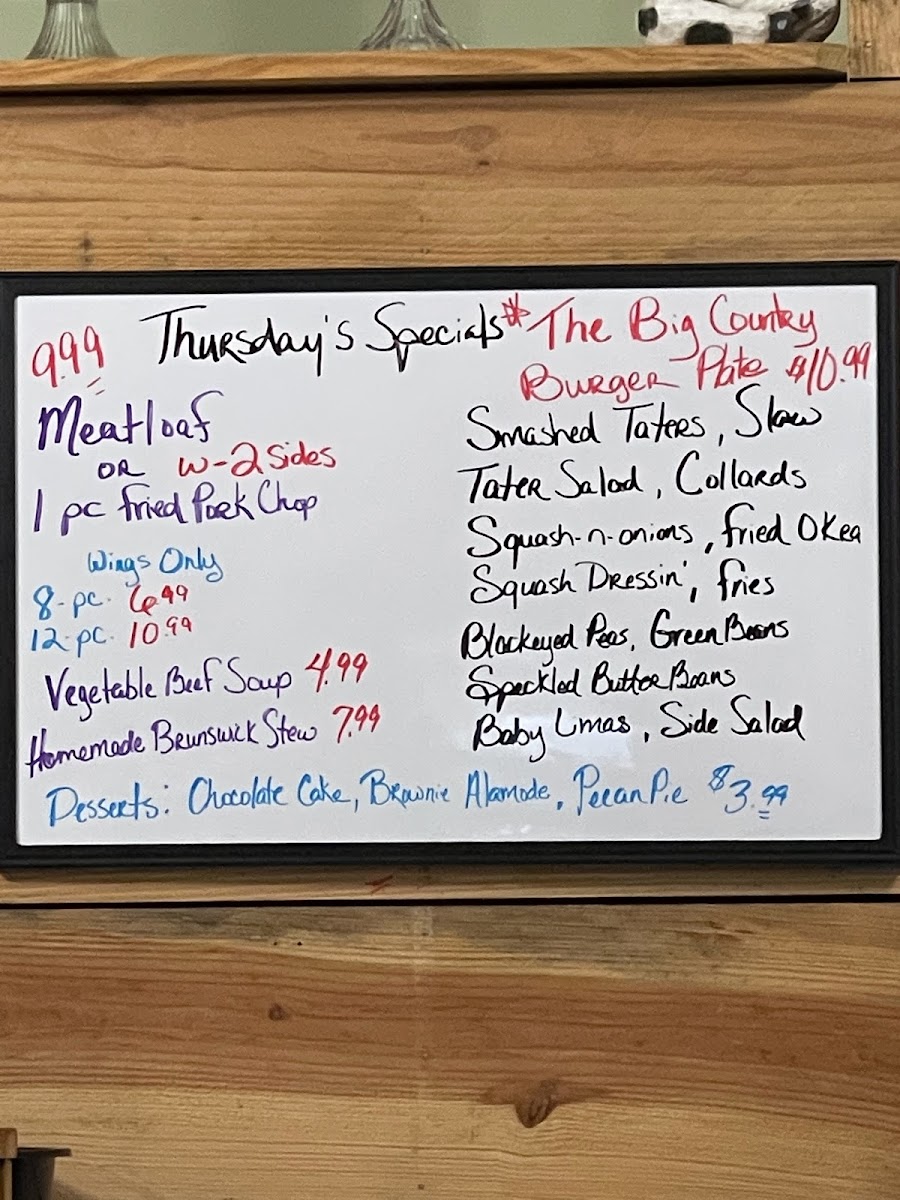 9.99 Thursday's Specials * The Big Country
Burger Plate $10.99
Meatloaf
OR w-2 Sides
1 pc fried Pork Chop
Wings Only
8-pc- 6.99
12-pc- 10.99
Vegetable Beef Soup 4.99
Homemade Brunswick Stew 7.99
Smashed Taters, Slaw
Tater Salad, Collards
Squash-n-onions, fried Okra
Squash Dressin', fries
Blackeyed Peas, Green Beans
Speckled Butter Beans
Baby Limas, Side Salad
Desserts: Chocolate Cake, Brownie Alamode, Pecan Pie $3.99